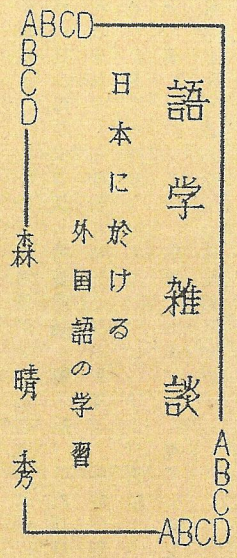 ABCD
ABCD
語学雑談
日本に於ける
外国語の学習
森晴秀
ABCD
ABCD